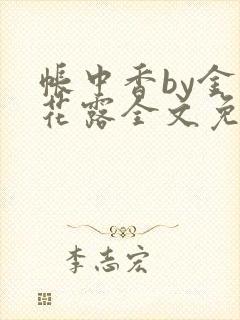 帐中香by金
花露全文免
李志宏